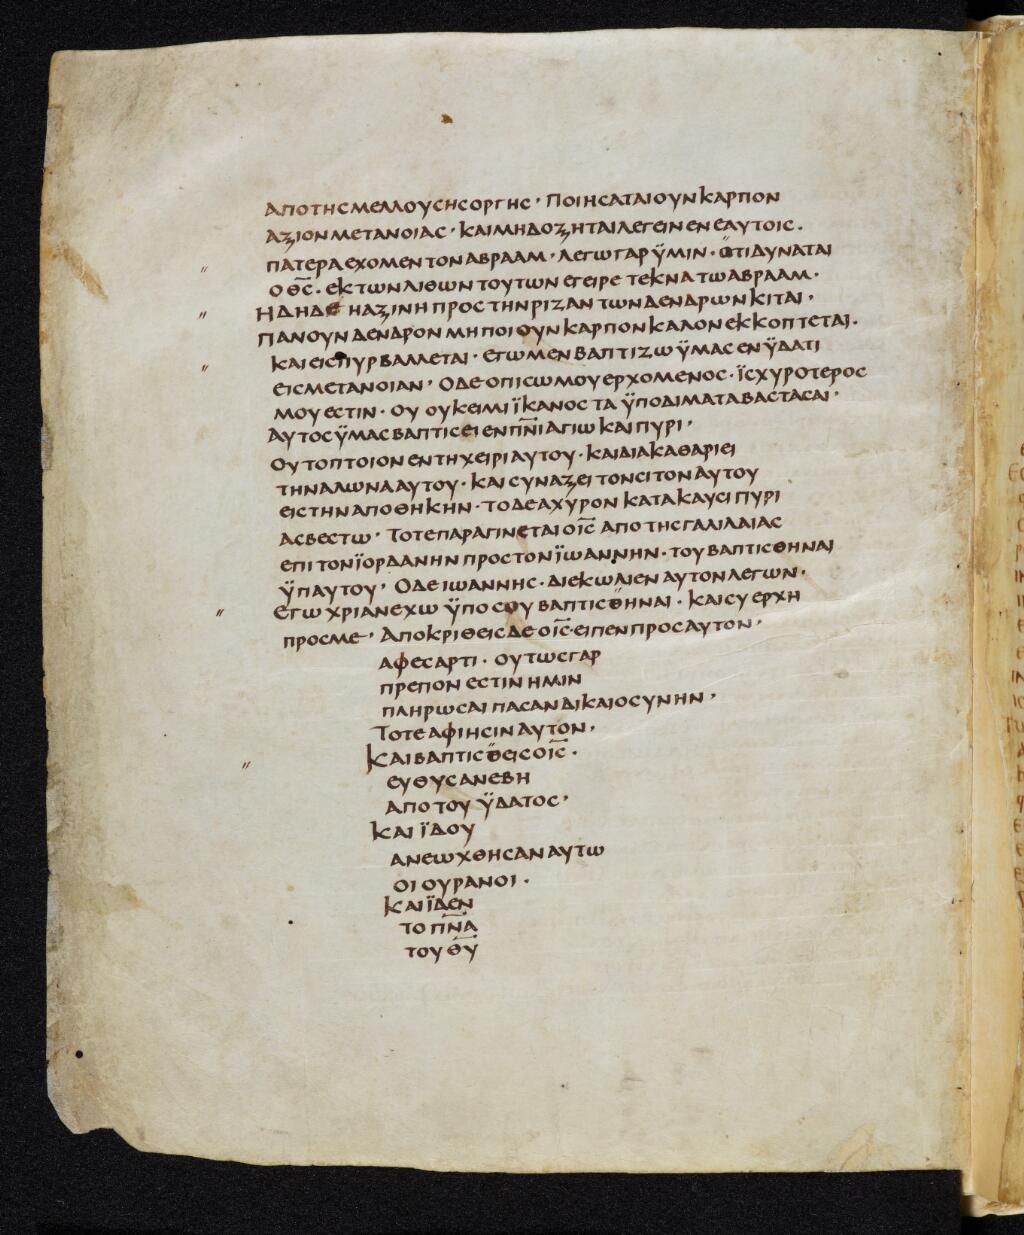 ΑΠΟΤΗϹΜΕΛΛΟΥϹΗϹΟΡΓΗϹ· ΠΟΙΗϹΑΤΑΙΟΥΝΚΑΡΠΟΝ
ΑΞΙΟΝΜΕΤΑΝΟΙΑϹ· ΚΑΙΜΗΔΟΞΗΤΑΙΛΕΓΕΙΝΕΝΕΑΥΤΟΙϹ.
ΠΑΤΕΡΑΕΧΟΜΕΝΤΟΝΑΒΡΑΑΜ· ΛΕΓΩΓΑΡΫΜΙΝ· ΟΤΙΔΥΝΑΤΑΙ
ΟΘ̅Ϲ̅. ΕΚΤΩΝΛΙΘΩΝΤΟΥΤΩΝΕΓΕΙΡΕΤΕΚΝΑΤΩΑΒΡΑΑΜ·
ΗΔΗΔΕΗΑΞΙΝΗΠΡΟϹΤΗΝΡΙΖΑΝΤΩΝΔΕΝΔΡΩΝΚΙΤΑΙ·
ΠΑΝΟΥΝΔΕΝΔΡΟΝΜΗΠΟΙΟΥΝΚΑΡΠΟΝΚΑΛΟΝΕΚΚΟΠΤΕΤΑΙ.
ΚΑΙΕΙϹΠΥΡΒΑΛΛΕΤΑΙ· ΕΓΩΜΕΝΒΑΠΤΙΖΩΫΜΑϹΕΝΫΔΑΤΙ
ΕΙϹΜΕΤΑΝΟΙΑΝ· ΟΔΕΟΠΙϹΩΜΟΥΕΡΧΟΜΕΝΟϹ· ΪϹΧΥΡΟΤΕΡΟϹ
ΜΟΥΕϹΤΙΝ· ΟΥΟΥΚΕΙΜΙΪΚΑΝΟϹΤΑΫΠΟΔΙΜΑΤΑΒΑϹΤΑϹΑΙ·
ΑΥΤΟϹΫΜΑϹΒΑΠΤΙϹΕΙΕΝΠ̅Ν̅Ι̅ΑΓΙΩΚΑΙΠΥΡΙ·
ΟΥΤΟΠΤΟΙΟΝΕΝΤΗΧΕΙΡΙΑΥΤΟΥ· ΚΑΙΔΙΑΚΑΘΑΡΙΕΙ
ΤΗΝΑΛΩΝΑΑΥΤΟΥ· ΚΑΙϹΥΝΑΞΕΙΤΟΝϹΙΤΟΝΑΥΤΟΥ
ΕΙϹΤΗΝΑΠΟΘΗΚΗΝ· ΤΟΔΕΑΧΥΡΟΝΚΑΤΑΚΑΥϹΙΠΥΡΙ
ΑϹΒΕϹΤΩ· ΤΟΤΕΠΑΡΑΓΙΝΕΤΑΙΟΙ̅Ϲ̅ΑΠΟΤΗϹΓΑΛΙΛΑΙΑϹ
ΕΠΙΤΟΝΪΟΡΔΑΝΗΝΠΡΟϹΤΟΝΪΩΑΝΝΗΝ· ΤΟΥΒΑΠΤΙϹΘΗΝΑΙ
ΫΠΑΥΤΟΥ· ΟΔΕΙΩΑΝΝΗϹ· ΔΙΕΚΩΛΙΕΝΑΥΤΟΝΛΕΓΩΝ·
ΕΓΩΧΡΙΑΝΕΧΩΫΠΟϹΟΥΒΑΠΤΙϹΘΗΝΑΙ· ΚΑΙϹΥΕΡΧΗ
ΠΡΟϹΜΕ· ΑΠΟΚΡΙΘΕΙϹΔΕΟΙ̅Ϲ̅·ΕΙΠΕΝΠΡΟϹΑΥΤΟΝ·
ΑΦΕϹΑΡΤΙ· ΟΥΤΩϹΓΑΡ
ΠΡΕΠΟΝΕϹΤΙΝΗΜΙΝ
ΠΛΗΡΩϹΑΙΠΑϹΑΝΔΙΚΑΙΟϹΥΝΗΝ·
ΤΟΤΕΑΦΙΗϹΙΝΑΥΤΟΝ·
ΚΑΙΒΑΠΤΙϹΘΕΙϹΟΙ̅Ϲ̅·
ΕΥΘΥϹΑΝΕΒΗ
ΑΠΟΤΟΥΫΔΑΤΟϹ·
ΚΑΙΪΔΟΥ
ΑΝΕΩΧΘΗϹΑΝΑΥΤΩ
ΟΙΟΥΡΑΝΟΙ·
ΚΑΙΪΔΕΝ
ΤΟΠ̅Ν̅Α̅
ΤΟΥΘ̅Υ̅